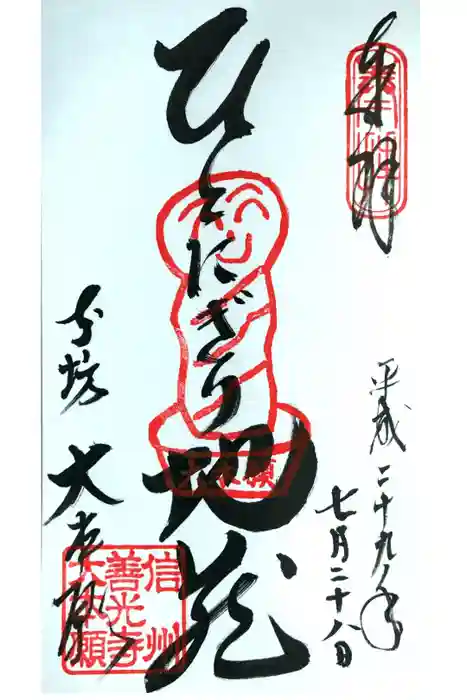 奉拝
奉拝
平成二十九年
七月二十八日
ひとにぎり地蔵
大本願
当坊
大本願
信州
善光寺
大本願